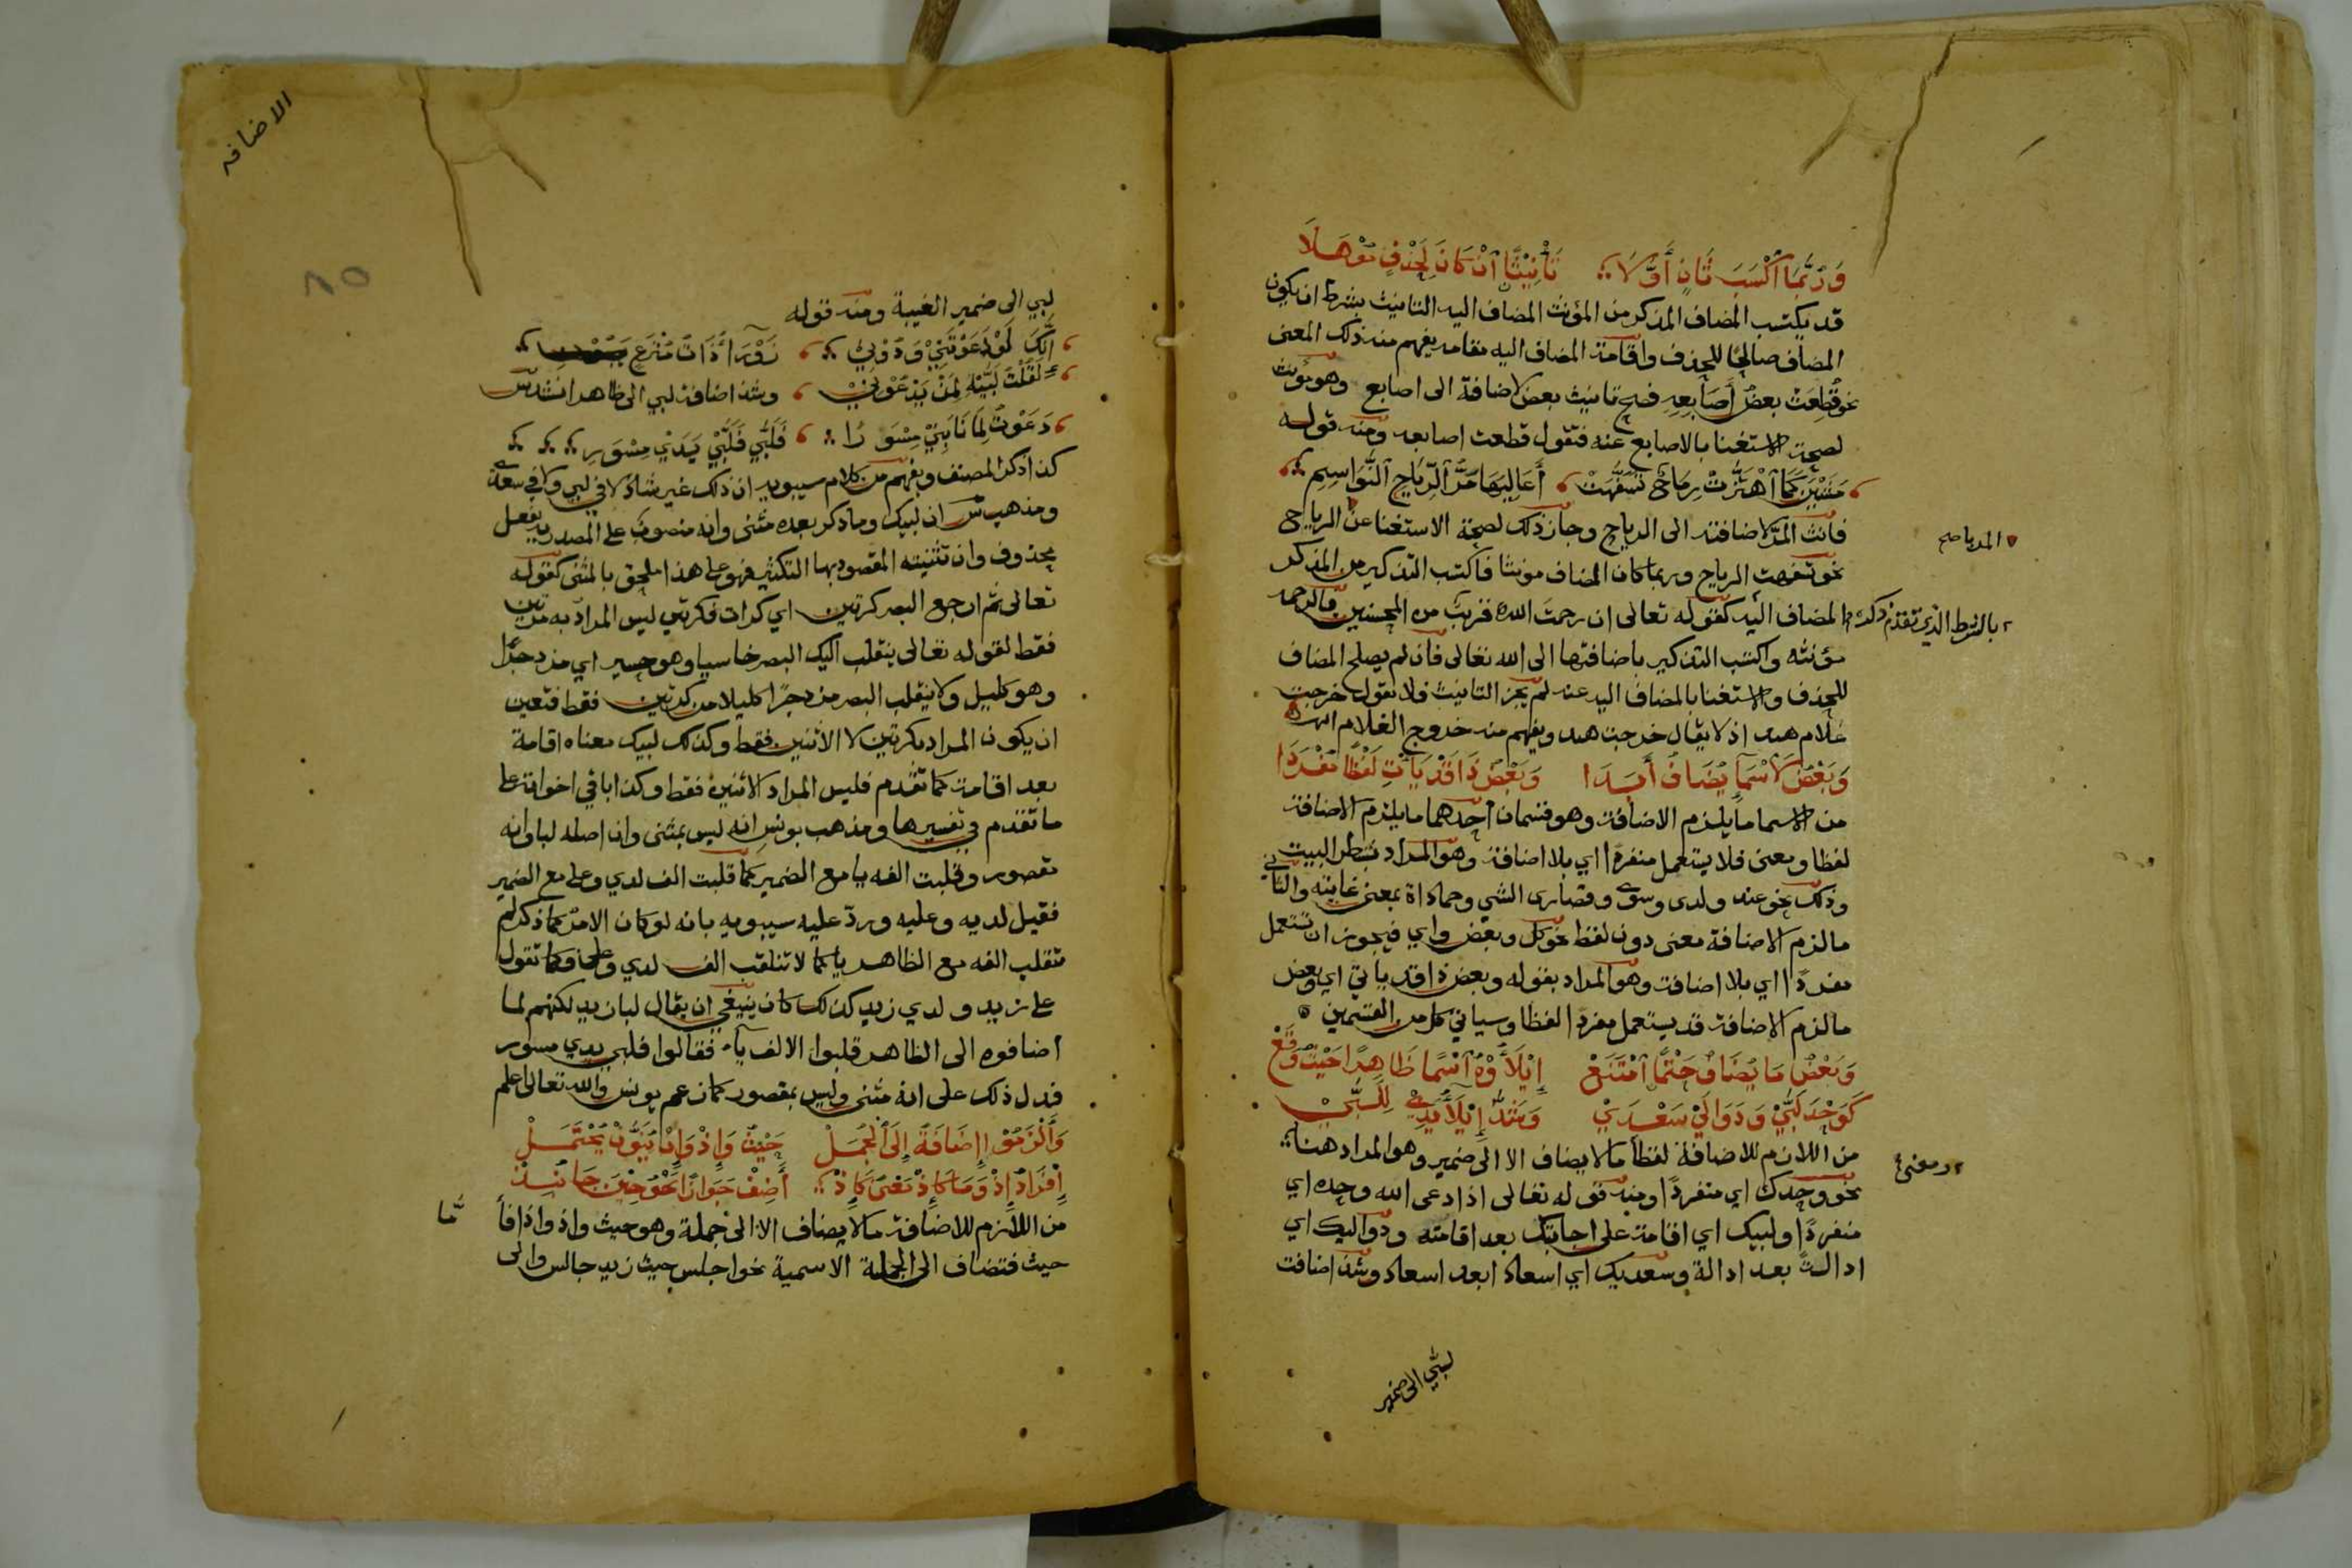 وَرُبَّمَا أَكْسَبَ ثَانٍ أَوَّلَا ∴ تَأْنِيْثًا انْ كَانَ لِحَذْفٍ مُوْهَلَا
قد يكتسب المضاف المذكر من المؤنث المضاف اليه التانيث بشرط ان يكون
المضاف صالحا للحذف واقامة المضاف اليه مقامه يفهم منه ذلك المعنى
نحو قُطِعَتْ بعضُ أَصَابِعِهِ فصح تانيث بعض لاضافة الى اصابع وهو مؤنث
لصحة الاستغنا بالاصابع عنه فتقول قطعت اصابعه ومنه قوله
مَشَيْنَ كَمَا اهْتَزَّتْ رِمَاحٌ تَسَفَّهَتْ ، أَعَالِيَهَا مَرُّ الرِّيَاحِ النَّوَاسِمِ ∴
فانث المر لاضافته الى الرياح وجاز ذلك لصحة الاستغنا عن الرياح
المر بالرياح صح
نحو تسفهت الرياح وربما كان المضاف مونثا فاكتسب التذكير من المذكر
المضاف اليه كقوله تعالى ان رحمت الله قريب من المحسنين فالرحمه
بالشرط الذي تقدم ذكره
مؤنثه واكتسب التذكير باضافتها الى الله تعالى فان لم يصلح المضاف
للحذف والاستغنا بالمضاف اليه عنه لم يجز التانيث فلا تقول خرجت
غلام هند اذ لا يقال خرجت هند ويفهم منه خروج الغلام انتهى
وَبَعْضُ لاَسْمَا يُضَافُ أَبَدَا وَبَعْضُ ذَا قَدْ يَأْتِ لَفْظًا مُفْرَدَا
من الاسما ما يلزم الاضافة وهو قسمان احدهما ما يلزم الاضافة
لفظا ومعنى فلا يستعمل مفردا اي بلا اضافة وهو المراد بشطر البيت
وذلك نحو عند ولدى وسوى وقصارى الشي وحماداه بمعنى غايته والثاني
ما لزم الاضافة معنى دون لفظ نحو كل وبعض واي فيجوز ان تستعمل
مفردًا اي بلا اضافة وهو المراد بقوله وبعض ذا قد ياتي اي وبعض
ما لزم الاضافة قد يستعمل مفردا لفظا وسياتي كل من القسمين
وَبَعْضُ مَا يُضَافُ حَتْمًا امْتَنَعْ إِيْلاَؤُهُ اسْمًا ظَاهِرًا حَيْثُ وَقَعْ
كَوَحْدَ لَبَّيْ وَدَوَالَيْ سَعْدَيْ وَشَذَّ إِيْلاَءُ يَدَيْ لِلَبَّيْ
من اللازم للاضافة لفظا ما لا يضاف الا الى ضمير وهو المراد هنا
ومعنى
نحو وحدك اي منفردًا ومنه قوله تعالى اذا دعى الله وحده اي
منفردًا ولبيك اي اقامة على اجابتك بعد اقامته ودواليك اي
ادالةً بعد ادالة وسعديك اي اسعادا بعد اسعاد وشذ اضافت
لبي الى ضمير
الاضافه
٨٥
لبي الى ضمير الغيبة ومنه قوله
إِنَّكَ لَوْ دَعَوْتَنِيْ وَدُوْنِيْ ∴ زَوْرَاءُ ذَاتُ مُنْزَعٍ بَيُوْنِ ∴
لَقُلْتُ لَبَّيْهِ لِمَنْ يَدْعُوْنِيْ وشذ اضافة لبي الى ظاهر انشد س
دَعَوْتُ لِمَا نَابَنِيْ مِسْوَرًا ∴ فَلَبَّى فَلَبَّيْ يَدَيْ مِسْوَرِ ∴
كذا ذكر المصنف ويفهم من كلام سيبويه ان ذلك غير شاذ لا في لبي ولا في سعدي
ومذهب س ان لبيك وما ذكر بعده مثنى وانه منصوب على المصدر بفعل
محذوف وان تثنيته المقصود بها التكثير فهو على هذا ملحق بالمثنى كقوله
تعالى ثم ارجع البصر كرتين اي كرات فكرتين ليس المراد به مرتين
فقط لقوله تعالى ينقلب اليك البصر خاسيا وهو حسير اي مزدجرًا
وهو كليل ولا ينقلب البصر مزدجرًا كليلا من كرتين فقط فتعين
ان يكون المراد بكرتين لا الاثنين فقط وكذلك لبيك معناه اقامة
بعد اقامة كما تقدم فليس المراد الاثنين فقط وكذا باقي اخواته على
ما تقدم في تفسيرها ومذهب يونس انه ليس بمثنى وان اصله لبا وانه
مقصور وقلبت الفه يا مع الضمير كما قلبت الف لدي وعلى مع الضمير
فقيل لديه وعليه وردّ عليه سيبويه بانه لو كان الامر كما ذكر لم
تنقلب الفه مع الظاهر يا كما لا تنقلب الف لدي وعلى فكما تقول
على زيد ولدي زيد كذلك كان ينبغي ان يقال لبا زيد لكنهم لما
اضافوه الى الظاهر قلبوا الالف ياء فقالوا فلبي يدي مسور
فدل ذلك على انه مثنى وليس بمقصور كما زعم يونس والله تعالى اعلم
وَأَلْزَمُوْا إِضَافَةً إِلَى الْجُمَلْ حَيْثُ وَإِذْ وَإِنْ يُنَوَّنْ يُحْتَمَلْ
إِفْرَادُ إِذْ وَمَا كَإِذْ مَعْنًى كَإِذْ ∴ أَضِفْ جَوَازًا نَحْوُ حِيْنَ جَا نُبِذْ
من اللازم للاضافة ما لا يضاف الا الى جملة وهو حيث واذ واذا فا
مّا
حيث فتضاف الى الجملة الاسمية نحو اجلس حيث زيد جالس والى